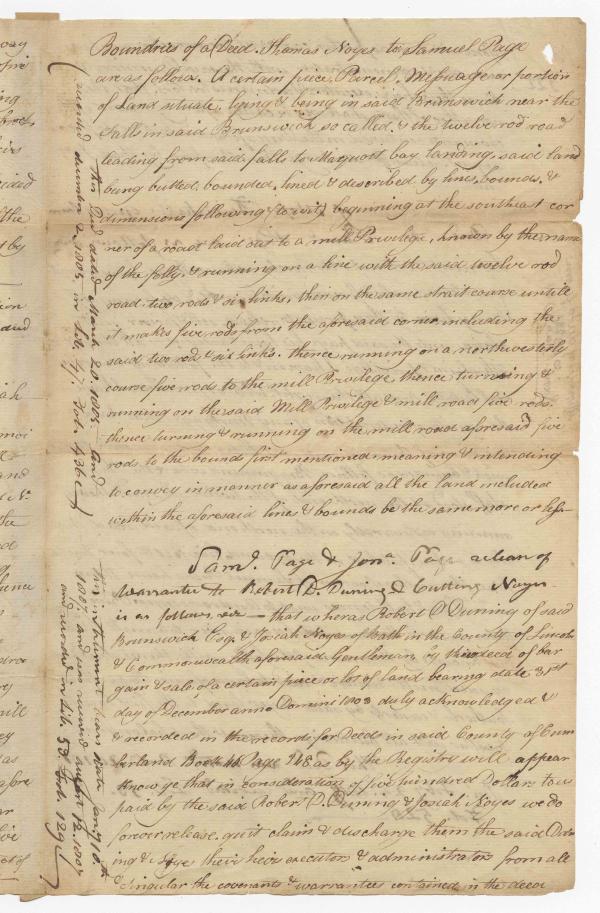 Boundries of a Deed. Thomas Noyes to Samuel Page
are as follow. A certain piece, Parcel, Mesuage or portion
of Land situate, lying & being in said Brunswick near the
Falls in said Brunswick so called, & the twelve rod road
leading from said falls to Maquoit bay landing, said land
being butted, bounded, lined & described by lines, bounds, &
dimensions following (to wit) beginning at the southeast cor
ner of a road laid out to a mill Privilege, known by the name
of the folly, & running on a line with the said twelve rod
road two rods & six links, then on the same strait course untill
it makes five rods from the aforesaid corner including the
said two rod & six links. thence running on a northwesterly
course five rods to the mill Privilege, thence turning &
running on the said Mill Privilege & mill road five rods.
thence turning & running on the mill road aforesaid five
rods to the bounds first mentioned meaning & intending
to convey in manner as aforesaid all the land included
within the aforesaid lines & bounds be the same more or less
This Deed dated March 20. 1805 and
recorded December 2 1805 in Lib. 47 Fol.
Saml. Page & Jona. Page a clean of
Warrantee to Robert D. Duning & Cutting Noyes
is as follows, viz – that wheras Robert D Duning of said
Brunswick Esqr & Josiah Noyes of Bath in the County of Lincoln
& Commonwealth aforesaid Gentleman, deed of bar
gain & sale of a certain piece or lot of land bearing date 31st
day of December anno Domini 1803 duly acknowledged &
& recorded in the records for Deeds in said County of Cum
berland Book Page 118 as by the Registry will appear
Know ye that in consideration of five hundred Dollars to us
paid by the said Robert D. Duning & Josiah Noyes we do
forever release, quit claim & discharge them the said Dun
ing & Noyes their heirs executors & administrators from all
& singular the covenants & warrantees contained in the deed
this instrument bears date Jany 10th
1807 and was received 12. 1807
and recorded in Lib. 53. Fol. 129